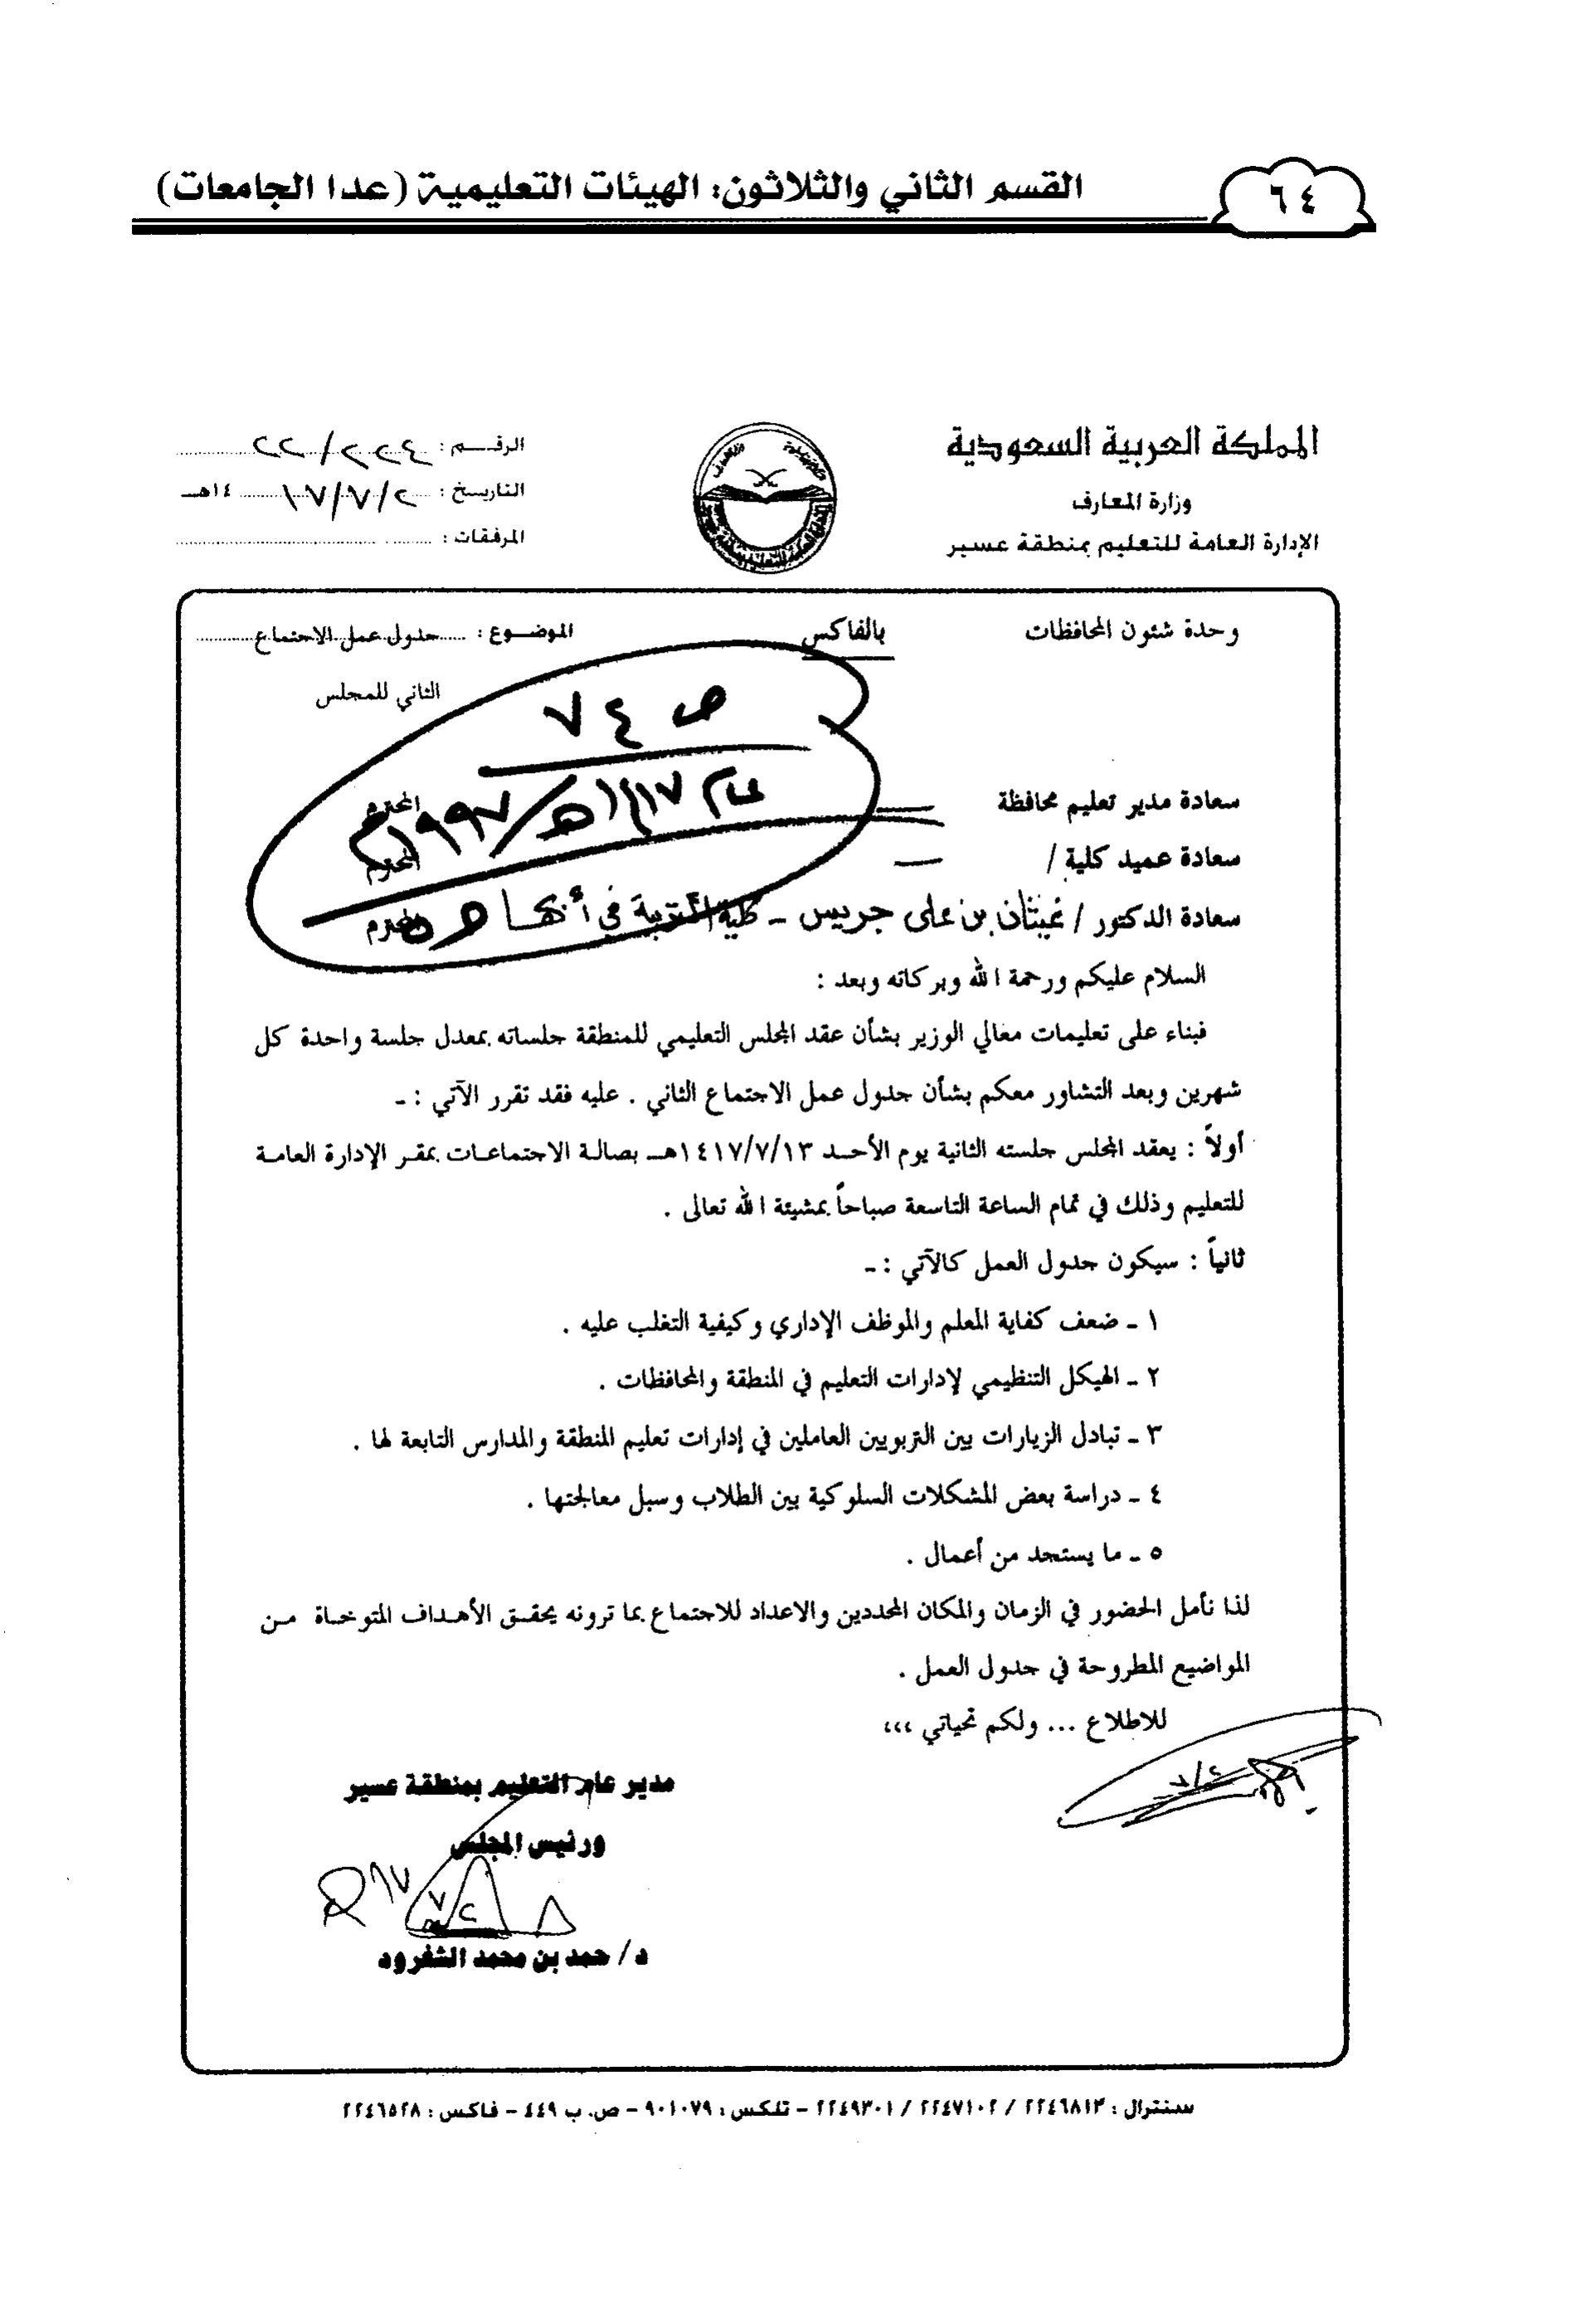 ٦٤
القسم الثاني والثلاثون: الهيئات التعليمية (عدا الجامعات)
المملكة العربية السعودية
وزارة المعارف
الإدارة العامة للتعليم بمنطقة عسير
الرقـــم : ٤٢٢/٢٢
التاريـخ : ٢/٧/١٧ ١٤هـ
المرفقات :
وحدة شئون المحافظات
بالفاكس
الموضـوع : جدول عمل الاجتماع
الثاني للمجلس
ص ٧٤
عام ١٤١٧هـ/١٩٩٧م
سعادة مدير تعليم محافظة المحترم
سعادة عميد كلية / المحترم
سعادة الدكتور / غيثان بن علي جريس - كلية التربية في أبها المحترم
السلام عليكم ورحمة الله وبركاته وبعد :
فبناء على تعليمات معالي الوزير بشأن عقد المجلس التعليمي للمنطقة جلساته بمعدل جلسة واحدة كل
شهرين وبعد التشاور معكم بشأن جدول عمل الاجتماع الثاني . عليه فقد تقرر الآتي : ـ
أولاً : يعقد المجلس جلسته الثانية يوم الأحـد ١٤١٧/٧/١٣هـ بصالة الاجتماعـات بمقـر الإدارة العامـة
للتعليم وذلك في تمام الساعة التاسعة صباحاً بمشيئة الله تعالى .
ثانياً : سيكون جدول العمل كالآتي : ـ
١ ـ ضعف كفاية المعلم والموظف الإداري وكيفية التغلب عليه .
٢ ـ الهيكل التنظيمي لإدارات التعليم في المنطقة والمحافظات .
٣ ـ تبادل الزيارات بين التربويين العاملين في إدارات تعليم المنطقة والمدارس التابعة لها .
٤ ـ دراسة بعض المشكلات السلوكية بين الطلاب وسبل معالجتها .
٥ ـ ما يستجد من أعمال .
لذا نأمل الحضور في الزمان والمكان المحددين والاعداد للاجتماع بما ترونه يحقـق الأهـداف المتوخـاة مـن
المواضيع المطروحة في جدول العمل .
للاطلاع ... ولكم تحياتي ،،،
مدير عام التعليم بمنطقة عسير
ورئيس المجلس
د/ حمد بن محمد الشغرود
سنترال : ٢٢٤٦٨١٣ / ٢٢٤٧١٠٢ / ٢٢٤٩٣٠١ - تلكس : ٩٠١٠٧٩ - ص. ب ٤٤٩ - فاكس : ٢٢٤٦٥٢٨